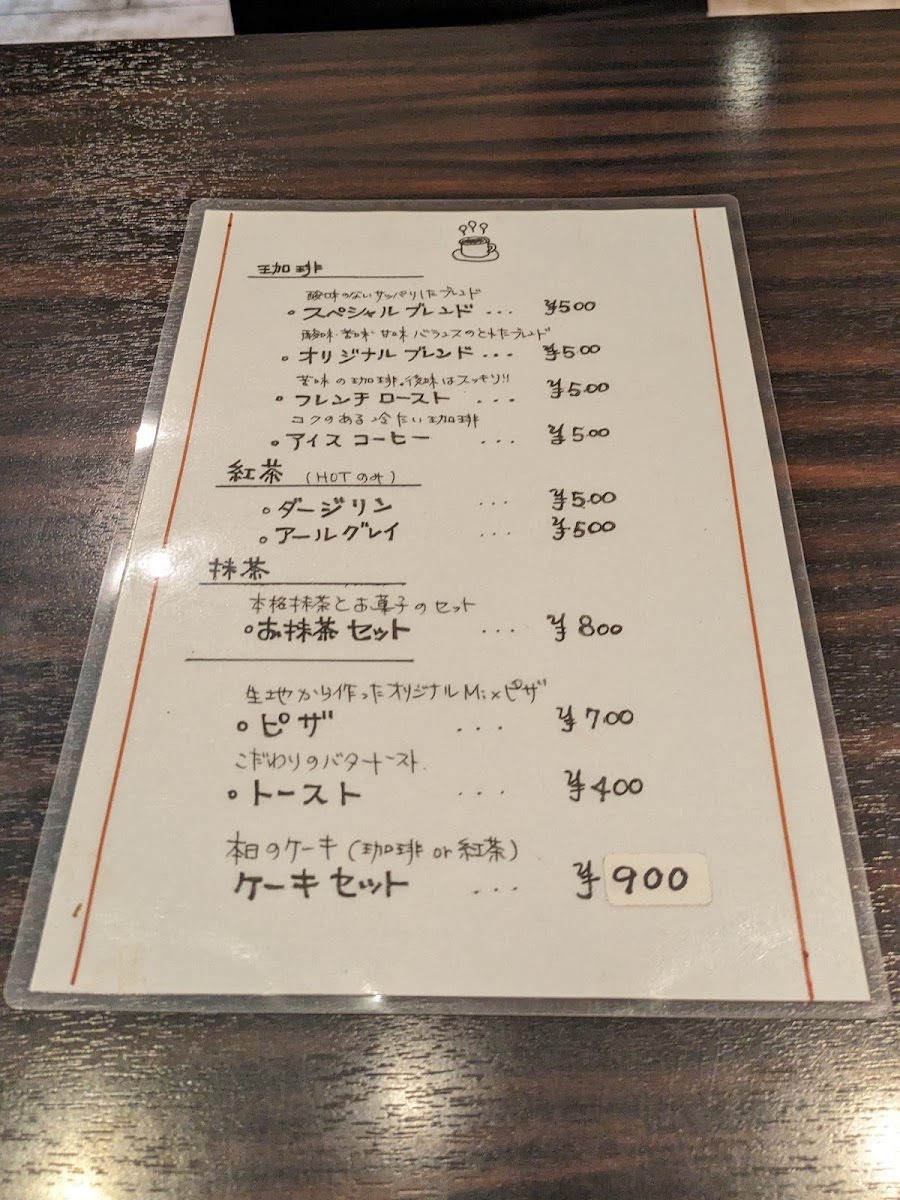 珈琲
酸味のないサッパリしたブレンド
。スペシャルブレンド ... ¥500
酸味・苦味・甘味 バランスのとれたブレンド
。オリジナルブレンド ... ¥500
苦味の珈琲。後味はスッキリ!!
。フレンチロースト ... ¥500
コクのある冷たい珈琲
。アイスコーヒー ... ¥500
紅茶 (HOTのみ)
。ダージリン ... ¥500
。アールグレイ ... ¥500
抹茶
本格抹茶とお菓子のセット
。お抹茶セット ... ¥800
生地から作ったオリジナルMixピザ
。ピザ ... ¥700
こだわりのバタートースト
。トースト ... ¥400
本日のケーキ(珈琲or紅茶)
ケーキセット ... ¥900